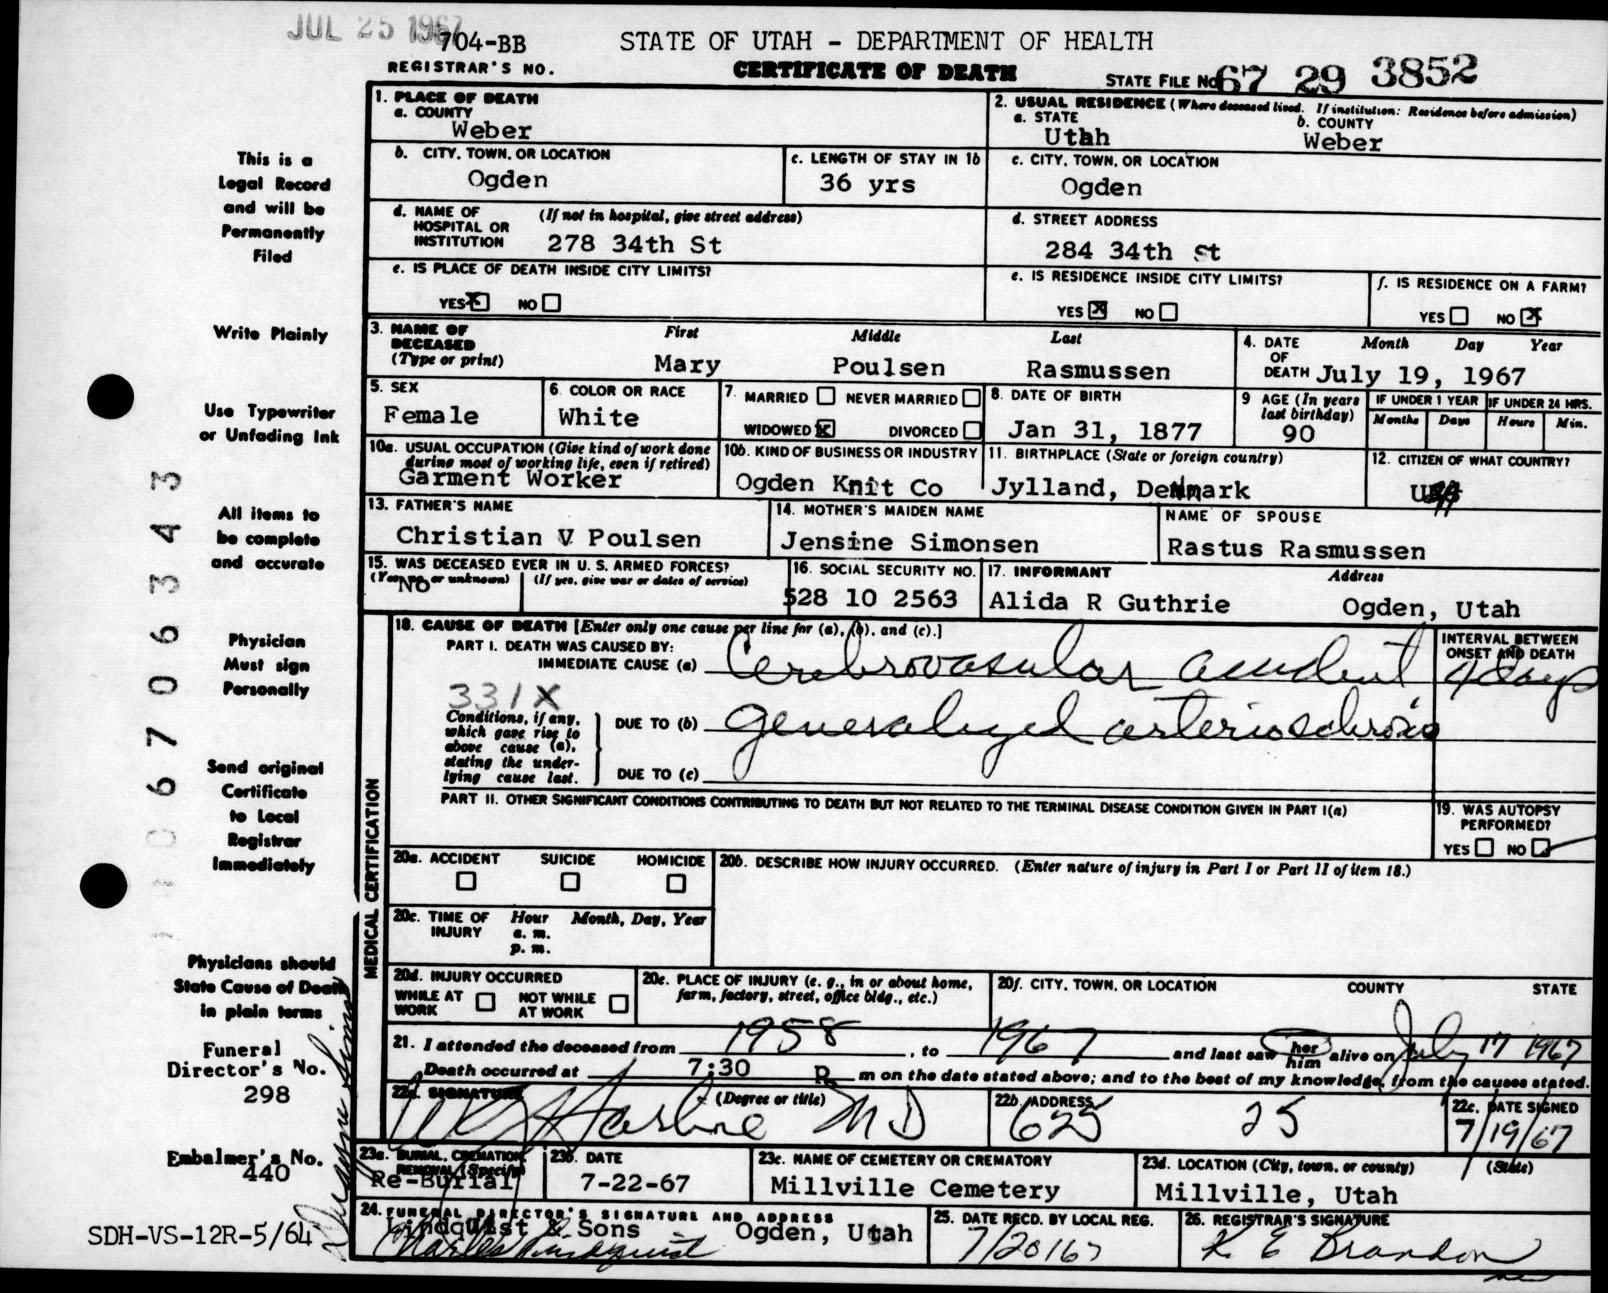 JUL 25 1967
704-BB
REGISTRAR'S NO.
STATE OF UTAH - DEPARTMENT OF HEALTH
CERTIFICATE OF DEATH
STATE FILE NO. 67 29 3852
This is a
Legal Record
and will be
Permanently
Filed
Write Plainly
Use Typewriter
or Unfading Ink
All items to
be complete
and accurate
Physician
Must sign
Personally
Send original
Certificate
to Local
Registrar
Immediately
Physicians should
State Cause of Death
in plain terms
Funeral
Director's No.
298
Embalmer's No.
440
SDH-VS-12R-5/64
067063443
1. PLACE OF DEATH
a. COUNTY
Weber
2. USUAL RESIDENCE (Where deceased lived. If institution: Residence before admission)
a. STATE
Utah
b. COUNTY
Weber
b. CITY, TOWN, OR LOCATION
Ogden
c. LENGTH OF STAY IN 1b
36 yrs
c. CITY, TOWN, OR LOCATION
Ogden
d. NAME OF HOSPITAL OR INSTITUTION (If not in hospital, give street address)
278 34th St
d. STREET ADDRESS
284 34th St
e. IS PLACE OF DEATH INSIDE CITY LIMITS?
YES X NO
e. IS RESIDENCE INSIDE CITY LIMITS?
YES X NO
f. IS RESIDENCE ON A FARM?
YES NO X
3. NAME OF DECEASED (Type or print)
First Middle Last
Mary Poulsen Rasmussen
4. DATE OF DEATH Month Day Year
July 19, 1967
5. SEX
Female
6. COLOR OR RACE
White
7. MARRIED NEVER MARRIED
WIDOWED X DIVORCED
8. DATE OF BIRTH
Jan 31, 1877
9 AGE (In years last birthday)
90
IF UNDER 1 YEAR
Months Days
IF UNDER 24 HRS.
Hours Min.
10a. USUAL OCCUPATION (Give kind of work done during most of working life, even if retired)
Garment Worker
10b. KIND OF BUSINESS OR INDUSTRY
Ogden Knit Co
11. BIRTHPLACE (State or foreign country)
Jylland, Denmark
12. CITIZEN OF WHAT COUNTRY?
13. FATHER'S NAME
Christian V Poulsen
14. MOTHER'S MAIDEN NAME
Jensine Simonsen
NAME OF SPOUSE
Rastus Rasmussen
15. WAS DECEASED EVER IN U. S. ARMED FORCES?
(Yes, no, or unknown) (If yes, give war or dates of service)
NO
16. SOCIAL SECURITY NO.
528 10 2563
17. INFORMANT Address
Alida R Guthrie Ogden, Utah
MEDICAL CERTIFICATION
18. CAUSE OF DEATH [Enter only one cause per line for (a), (b), and (c).]
PART I. DEATH WAS CAUSED BY:
IMMEDIATE CAUSE (a) Cerebrovascular accident
INTERVAL BETWEEN ONSET AND DEATH
4 days
331X
Conditions, if any, which gave rise to above cause (a), stating the underlying cause last.
DUE TO (b) generalized arteriosclerosis
DUE TO (c)
PART II. OTHER SIGNIFICANT CONDITIONS CONTRIBUTING TO DEATH BUT NOT RELATED TO THE TERMINAL DISEASE CONDITION GIVEN IN PART I(a)
19. WAS AUTOPSY PERFORMED?
YES NO
20a. ACCIDENT SUICIDE HOMICIDE
20b. DESCRIBE HOW INJURY OCCURRED. (Enter nature of injury in Part I or Part II of item 18.)
20c. TIME OF INJURY Hour Month, Day, Year
a. m.
p. m.
20d. INJURY OCCURRED
WHILE AT WORK NOT WHILE AT WORK
20e. PLACE OF INJURY (e. g., in or about home, farm, factory, street, office bldg., etc.)
20f. CITY, TOWN, OR LOCATION COUNTY STATE
21. I attended the deceased from 1958, to 1967 and last saw her him alive on July 17 1967
Death occurred at 7:30 P m on the date stated above; and to the best of my knowledge, from the causes stated.
22a. SIGNATURE (Degree or title)
MD
22b. ADDRESS
625 25
22c. DATE SIGNED
7/19/67
23a. BURIAL, CREMATION, REMOVAL (Specify)
Re-Burial
23b. DATE
7-22-67
23c. NAME OF CEMETERY OR CREMATORY
Millville Cemetery
23d. LOCATION (City, town, or county) (State)
Millville, Utah
24. FUNERAL DIRECTOR'S SIGNATURE AND ADDRESS
Lindquist & Sons Ogden, Utah
Charles Lindquist
25. DATE RECD. BY LOCAL REG.
7/20/67
26. REGISTRAR'S SIGNATURE
K E Brandon